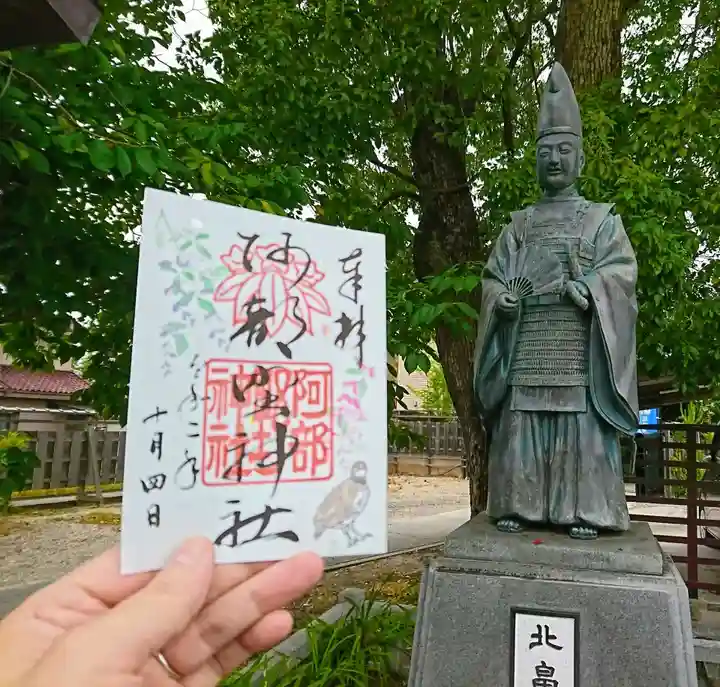 奉拝
阿部野神社
阿部野神社
令和二年
十月四日
北畠